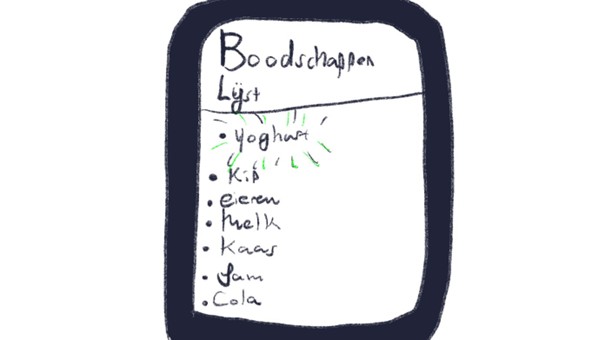 Boodschappen
Lijst
• Yoghurt
• Kip
• eieren
• Melk
• Kaas
• Jam
• Cola